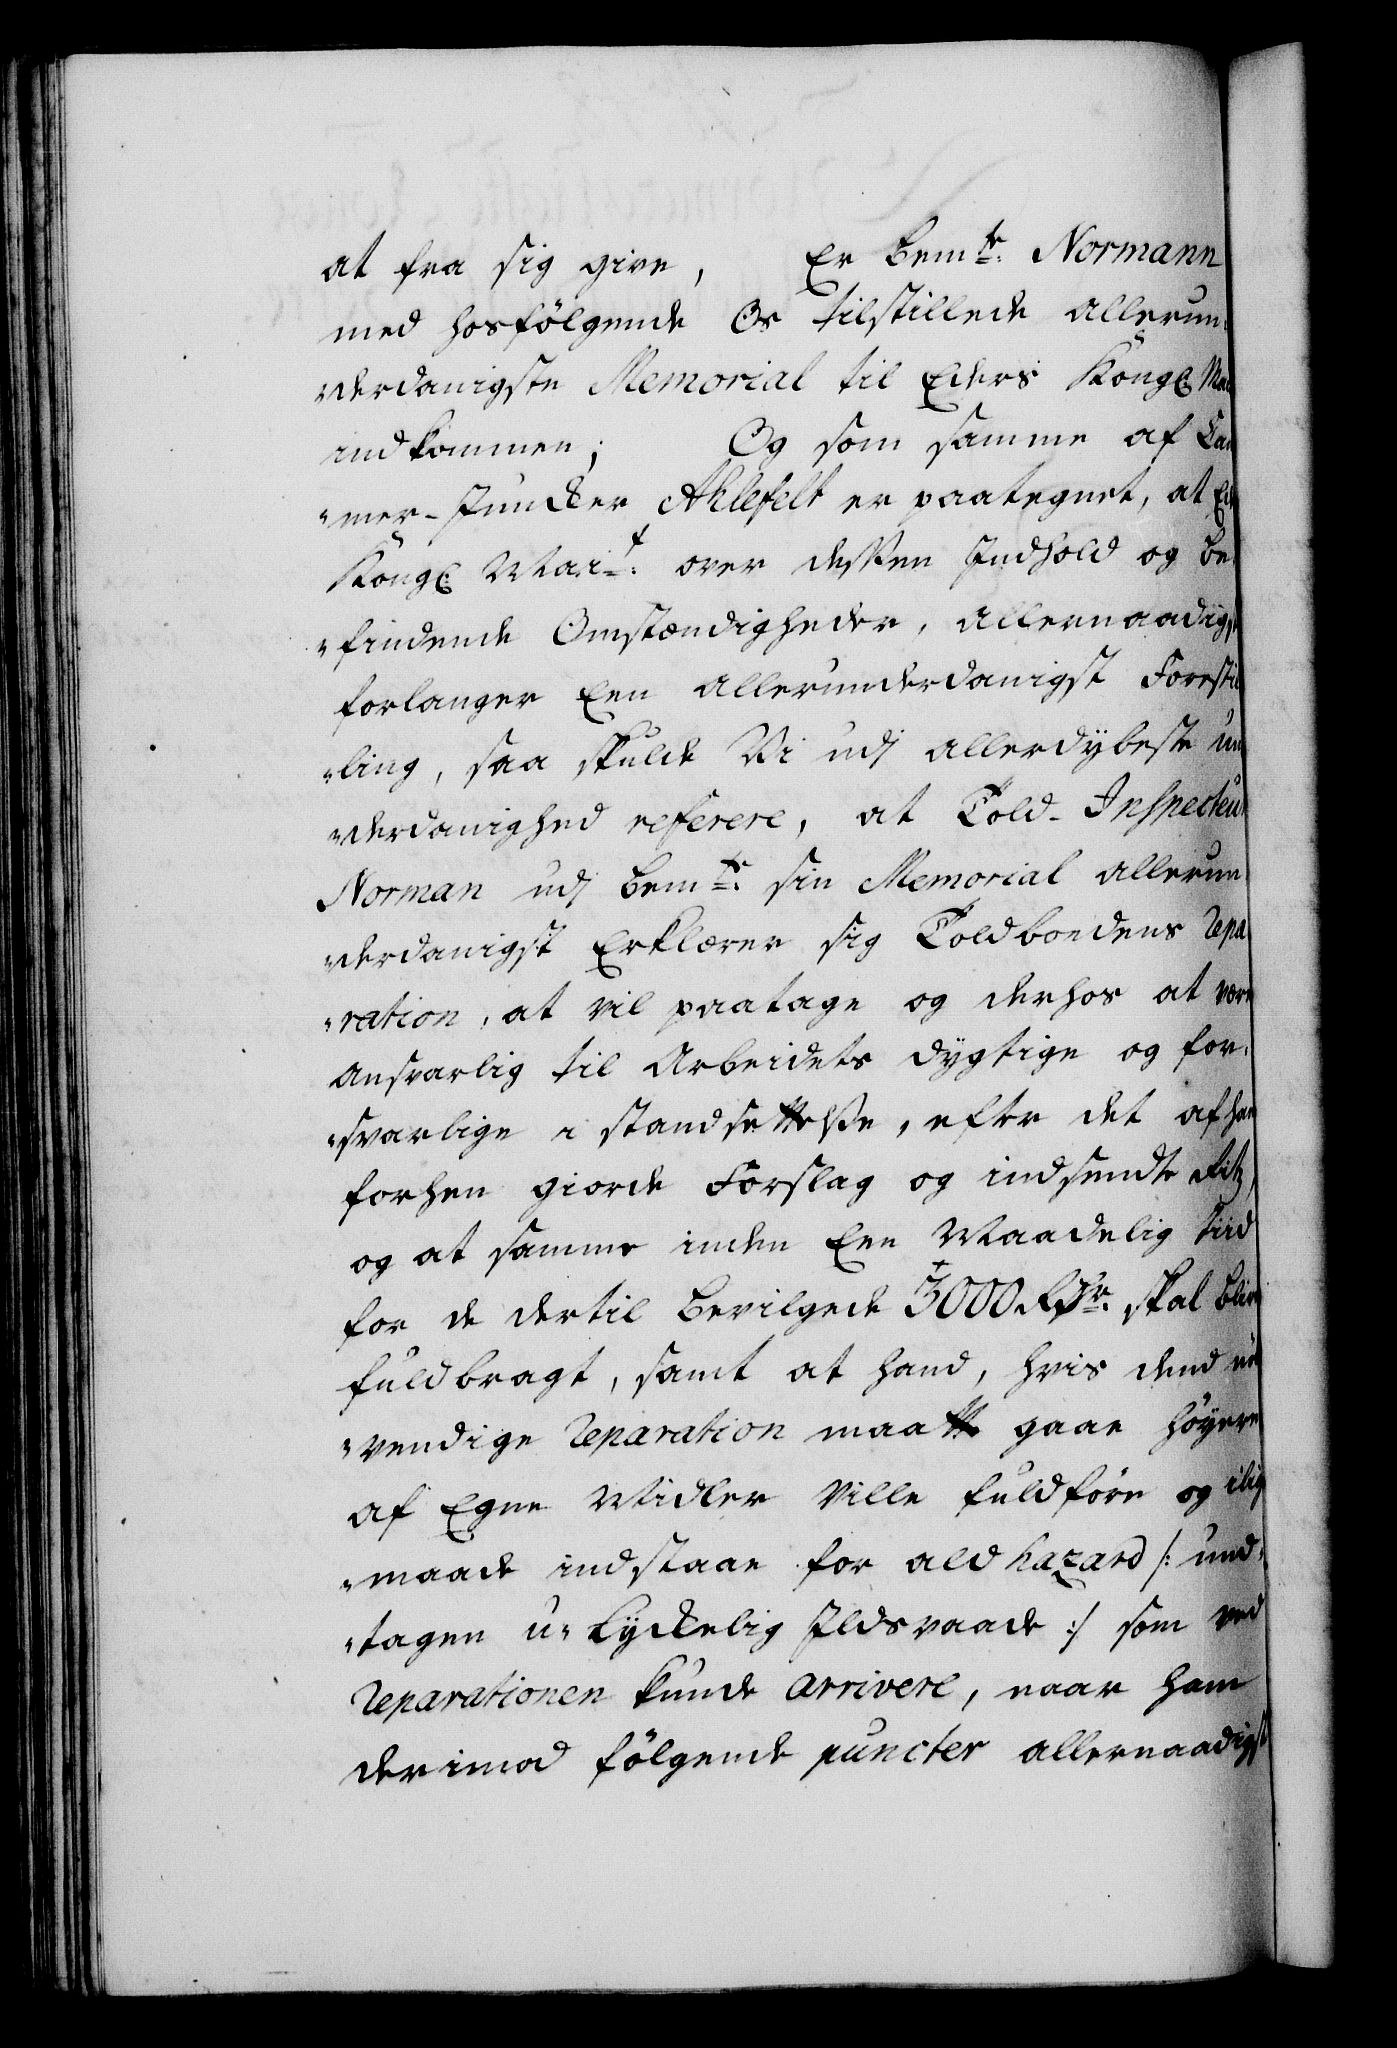 at fra sig give, Er bemte. Normann
med hosfölgende Os tilstillede allerun-
"derdanigste Memorial til Eders Kongl. May
indkommen; Og som samme af Cam
"mer-Juncker Ahlefelt er paategnet, at Ed
Kongl. Mait. over dessen Indhold og be-
"findende Omstændigheder, allernaadigst
forlanger Een allerunderdanigst Forestil
"ling, saa skulde Vi udj allerdybeste un
"derdanighed referere, at Told-Inspecteur
Norman udj bemte. sin Memorial allerun
"derdanigst Erklærer sig Toldboedens Repa
"ration, at vil paatage og derhos at være
ansvarlig til Arbeidets dygtige og for-
"svarlige i standsættelse, efter det af ham
forhen giorde Forslag og indsendte Ritz,
og at samme inden Een Maadelig Tiid
for de dertil bevilgede 3000 Rdr. skal blive
fuldbragt, samt at hand, hvis dend nød
"vendige Reparation maatte gaae höyere
af Egne Midler ville fuldføre og ilige
"maade indstaae for ald hazard /: und-
"tagen u-lyckelig Ildsvaade :/ som ved
Reparationen kunde arrivere, naar ham
derimod fölgende puncter allernaadigst